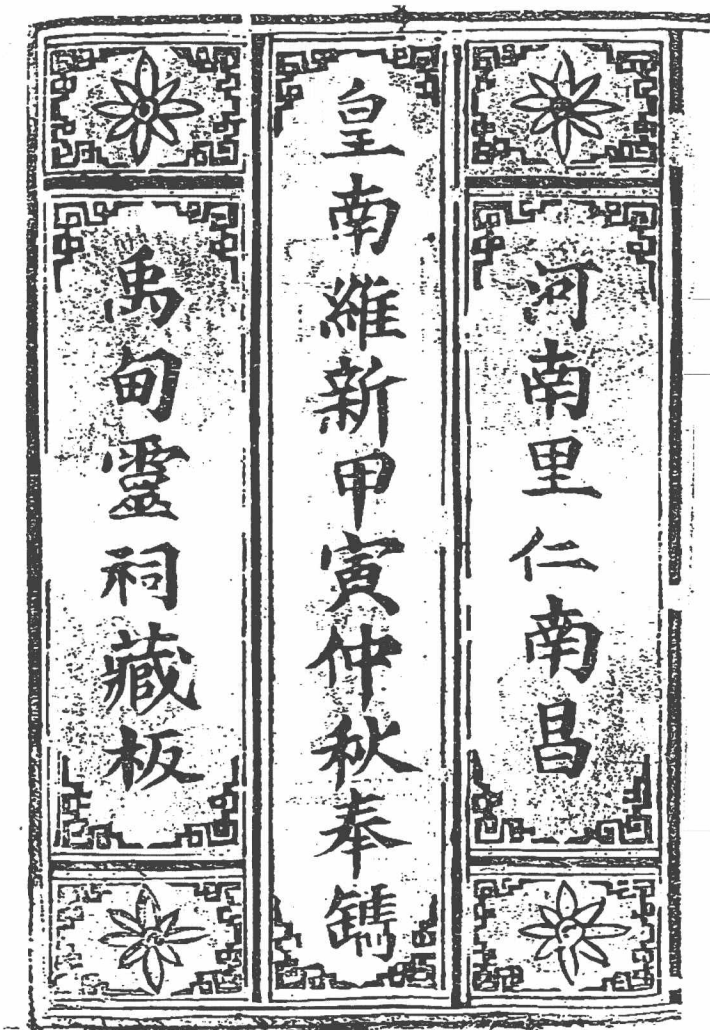 河南里仁南昌
皇南維新甲寅仲秋奉鐫
禹甸靈祠藏板